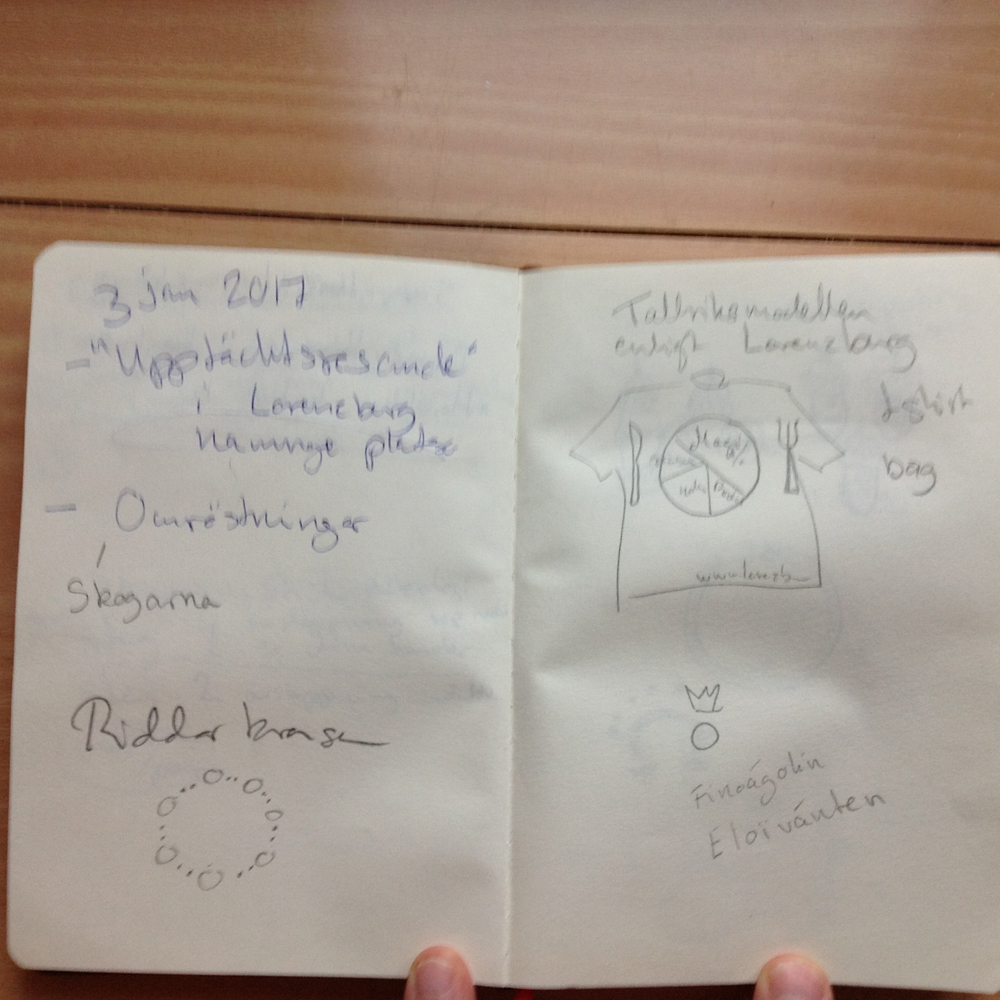 3 jan 2017
- "Upptäcktsresande"
i Lorenzburg
Namnge platse
- Omröstningar
Skogarna
Riddar kransen
Tallriksmodellen
enligt Lorenzburg
t-shirt
bag
Magi
www.lorenzb
Finoágolin
Eloïvánten